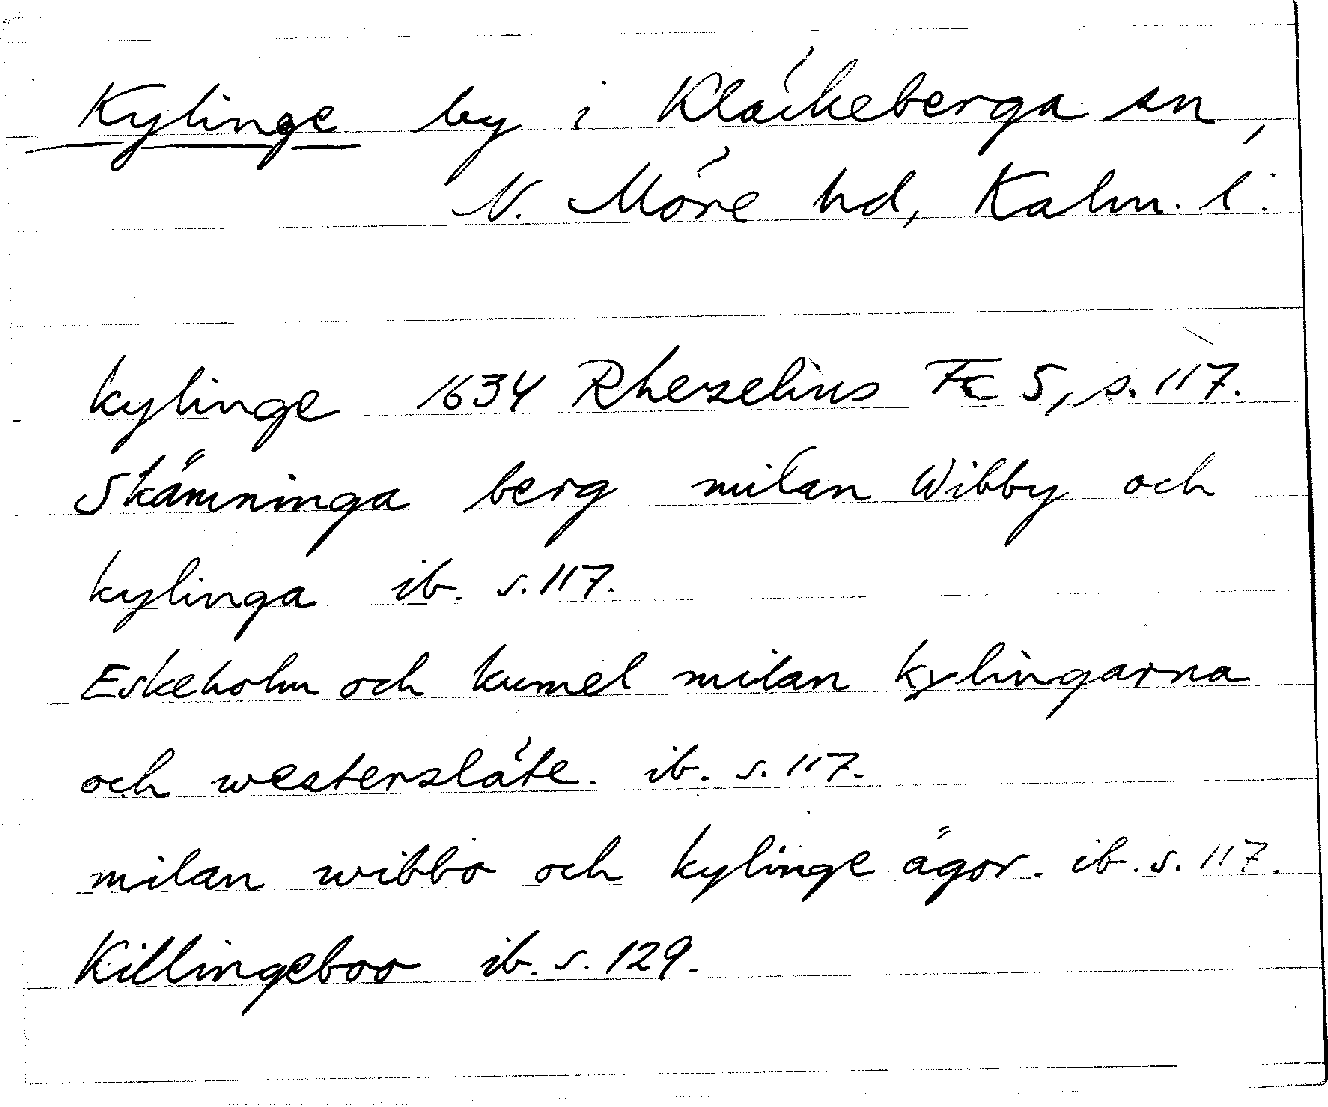 Kylinge by i Kläckeberga sn,
N. Möre hd, Kalm. l:
kylinge 1634 Rhezelius Fc 5, s. 117.
Skämninga berg milan Wibby och
kylinga ib. s. 117.
Eskeholm och kumel milan kylingarna
och westersläte. ib. s. 117.
milan wibbo och kylinge ägor. ib. s. 117.
Killingeboo ib. s. 129.